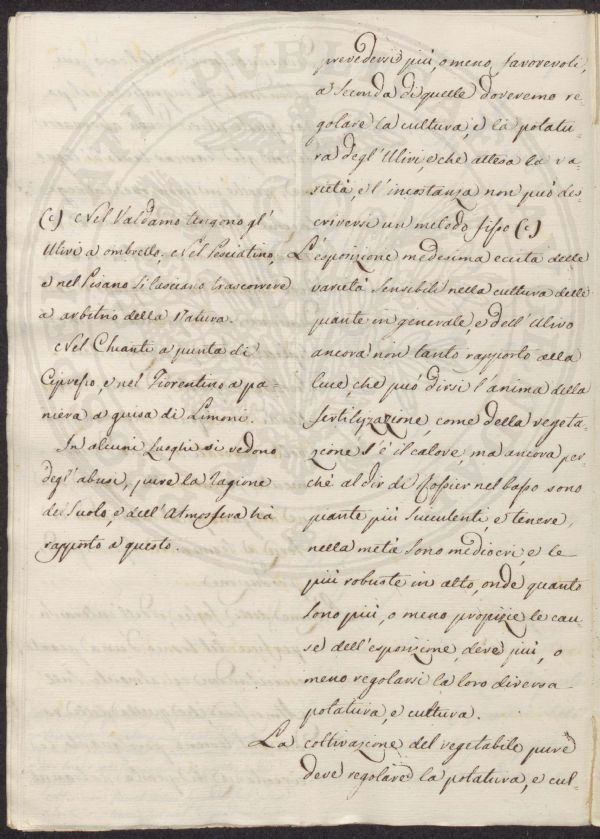 prevedersi più, o meno, favorevoli,
a seconda di quelle doveremo re=
golare la cultura, e la potatu=
ra degl'Ulivi, e che attesa la va=
rietà, e l'incostanza non può des=
criversi un metodo fisso (c)
L'esposizione medesima ecita delle
varietà sensibili nella cultura delle
piante in generale, e dell'Ulivo
ancora non tanto rapporto alla
luce, che può dirsi l'anima della
fertilizzazione, come della vegeta=
zione l'è il calore, ma ancora per=
chè al dir di Rossier nel basso sono
piante più succulenti, e tenere,
nella metà sono mediocri, e le
più robuste in alto, onde quanto
sono più, o meno propizie le cau=
se dell'esposizione, deve più, o
meno regolarsi la loro diversa
potatura, e cultura.
La coltivazione del vegetabile pure
deve regolare la potatura, e cul=
(c) Nel Valdarno tengono gl'
Ulivi a ombrello. Nel Pesciatino,
e nel Pisano si lasciano trascorrere
a arbitrio della Natura.
Nel Chianti a punta di
Cipresso, e nel Fiorentino a pa=
niera a guisa di Limoni.
In alcuni Luoghi si vedono
degl'abusi, pure la ragione
del Suolo, e dell'Atmosfera hà
rapporto a questo.